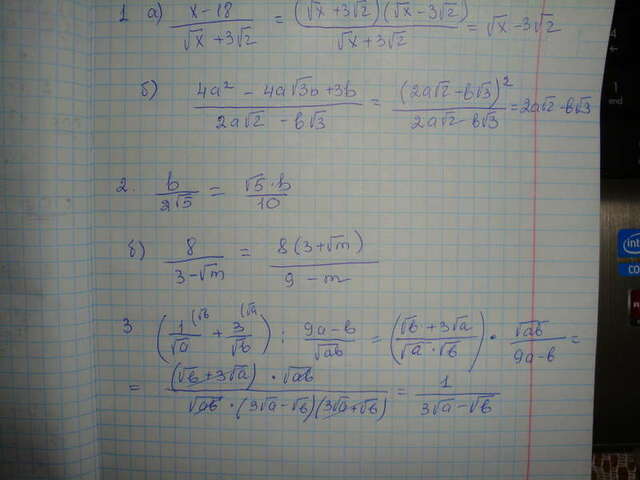 1 а) (x-18)/(√x+3√2) = ((√x+3√2)(√x-3√2))/(√x+3√2) = √x-3√2
б) (4a²-4a√3b+3b)/(2a√2-b√3) = (2a√2-b√3)²/(2a√2-b√3) = 2a√2-b√3
2. b/(2√5) = (√5·b)/10
б) 8/(3-√m) = (8(3+√m))/(9-m)
3 (1/√a (√b + 3/√b (√a) : (9a-b)/√ab = ((√b+3√a)/(√a·√b)) · √ab/(9a-b) =
= ((√b+3√a)·√ab)/(√ab·(3√a-√b)(3√a+√b)) = 1/(3√a-√b)
1
end
int